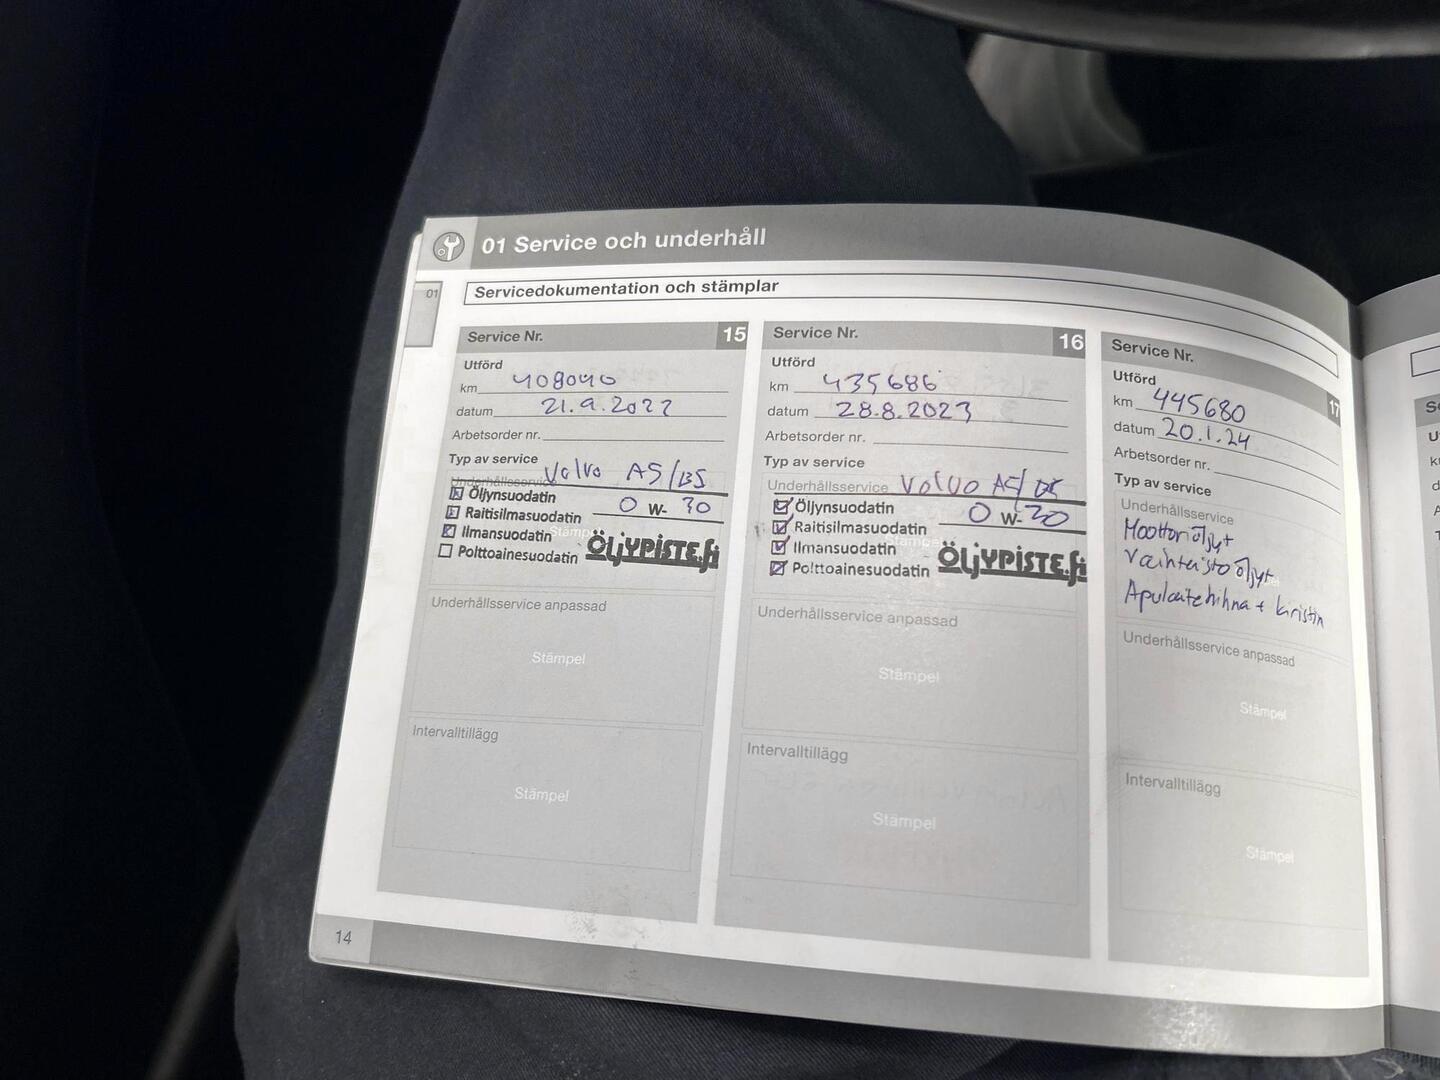 01 Service och underhåll
01
Servicedokumentation och stämplar
Service Nr. 15
Utförd
km 408040
datum 21.9.2022
Arbetsorder nr.
Typ av service
Volvo A5/B5
Underhållsservice
Öljynsuodatin
0 W- 30
Raitisilmasuodatin
Ilmansuodatin
Stämpel
Polttoainesuodatin
ÖLJYPISTE.fi
Underhållsservice anpassad
Stämpel
Intervalltillägg
Stämpel
Service Nr. 16
Utförd
km 435686
datum 28.8.2023
Arbetsorder nr.
Typ av service
Underhållsservice Volvo A5/B5
Öljynsuodatin
0 W-30
Raitisilmasuodatin
Stämpel
Ilmansuodatin
Polttoainesuodatin
ÖLJYPISTE.fi
Underhållsservice anpassad
Stämpel
Intervalltillägg
Stämpel
Service Nr. 17
Utförd
km 445680
datum 20.1.24
Arbetsorder nr.
Typ av service
Underhållsservice
Moottoriöljyt
Vaihteistoöljyt
Apulaitehihna + kiristin
Underhållsservice anpassad
Stämpel
Intervalltillägg
Stämpel
14